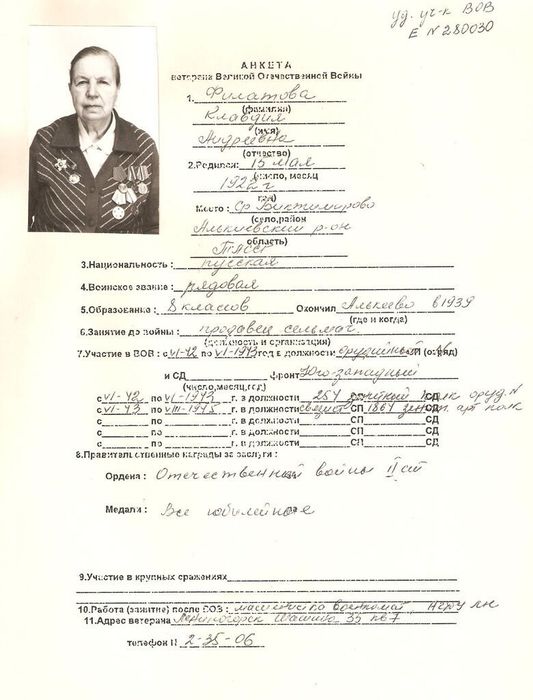 уд. уч-к ВОВ
Е № 280030
АНКЕТА
ветерана Великой Отечественной Войны
1. Филатова
(фамилия)
Клавдия
(имя)
Андреевна
(отчество)
2.Родился: 15 мая
(число, месяц
1922 г
год)
Место: Ср Биктимирово
(село,район
Алькиевский р-он
область)
ТАССР
3.Национальность: русская
4.Воинское звание: рядовая
5.Образование: 8 классов Окончил Алькеево в 1939
(где и когда)
6.Занятие до войны: продавец сельмаг.
(должность и организация)
7.Участие в ВОВ: с VI-42 по VI-1943 год в должности орудийный (отряд)
и СД фронт Юго-западный
(число,месяц,год)
с VI-42 по VI-1943 г. в должности 254 полк оруд. № СД
с VI-43 по VIII-1945 г. в должности СП 1864 зенит. ар полк СД
с по г. в должности СП СД
с по г. в должности СП СД
8.Правительственные награды за заслуги:
Ордена: Отечественной войны II ст
Медали: Все юбилейные
9.Участие в крупных сражениях
10.Работа (занятие) после ВОВ: военкомат НГДУ
11.Адрес ветерана Лениногорск Шашина 35 кв 7
телефон N 2-35-06